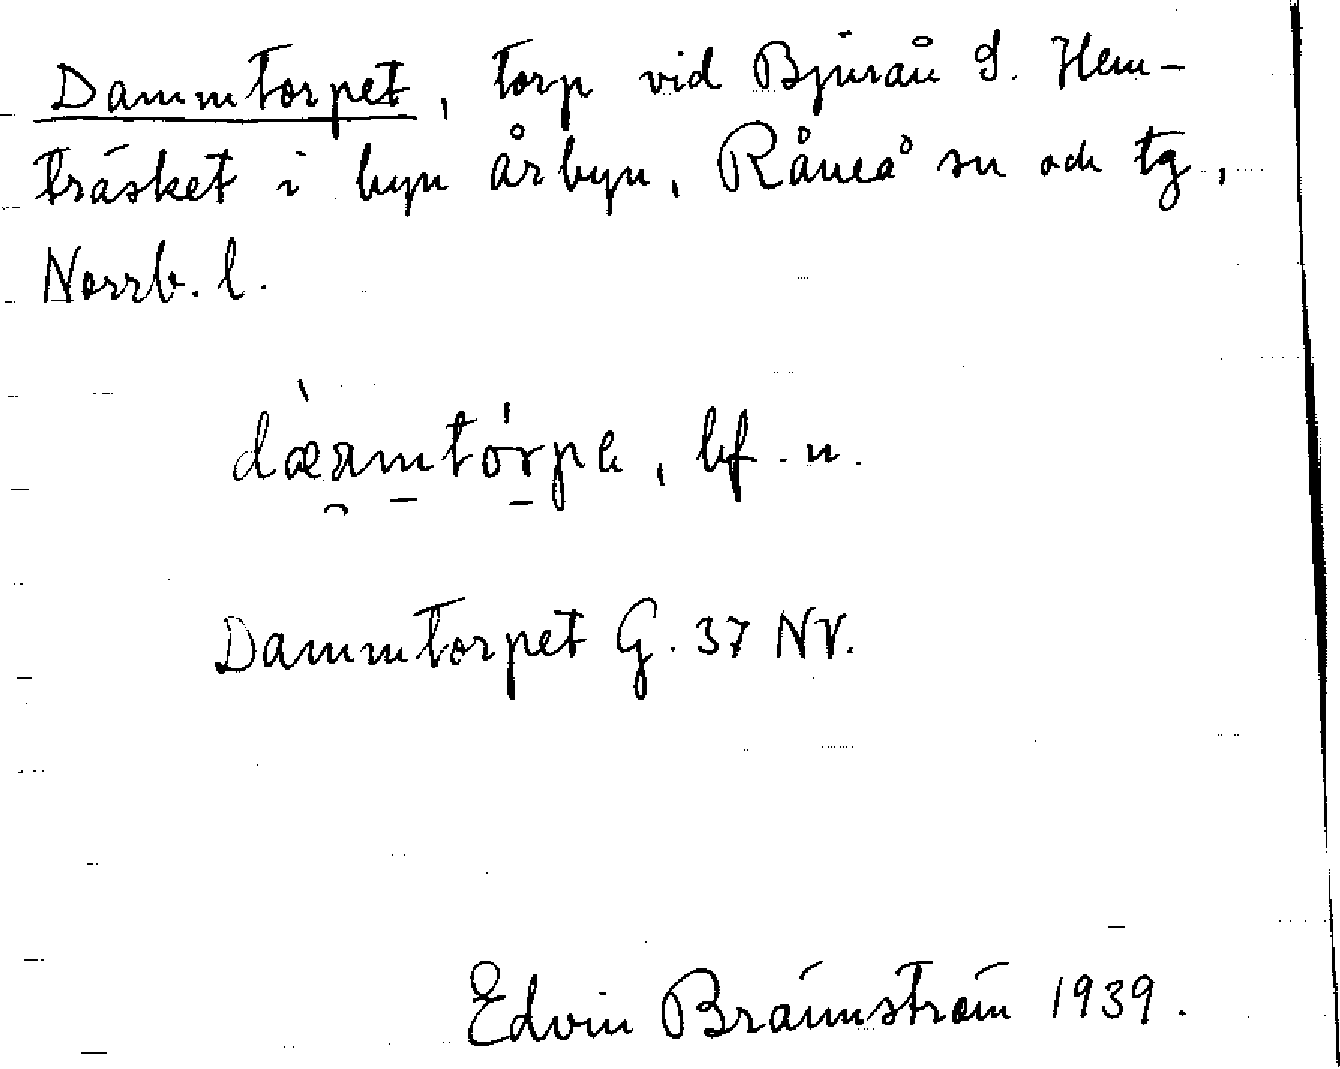 Dammtorpet, torp vid Bjuraå S. Hem-
träsket i byn Årbyn, Råneå sn och tg,
Norrb. l.
bf. n.
Dammtorpet G. 37 NV.
Edvin Brännström 1939.